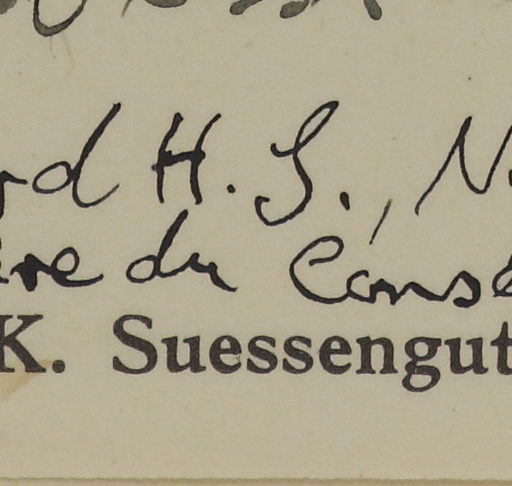 rd H. S., N.
ère du Conse
K. Suessengut